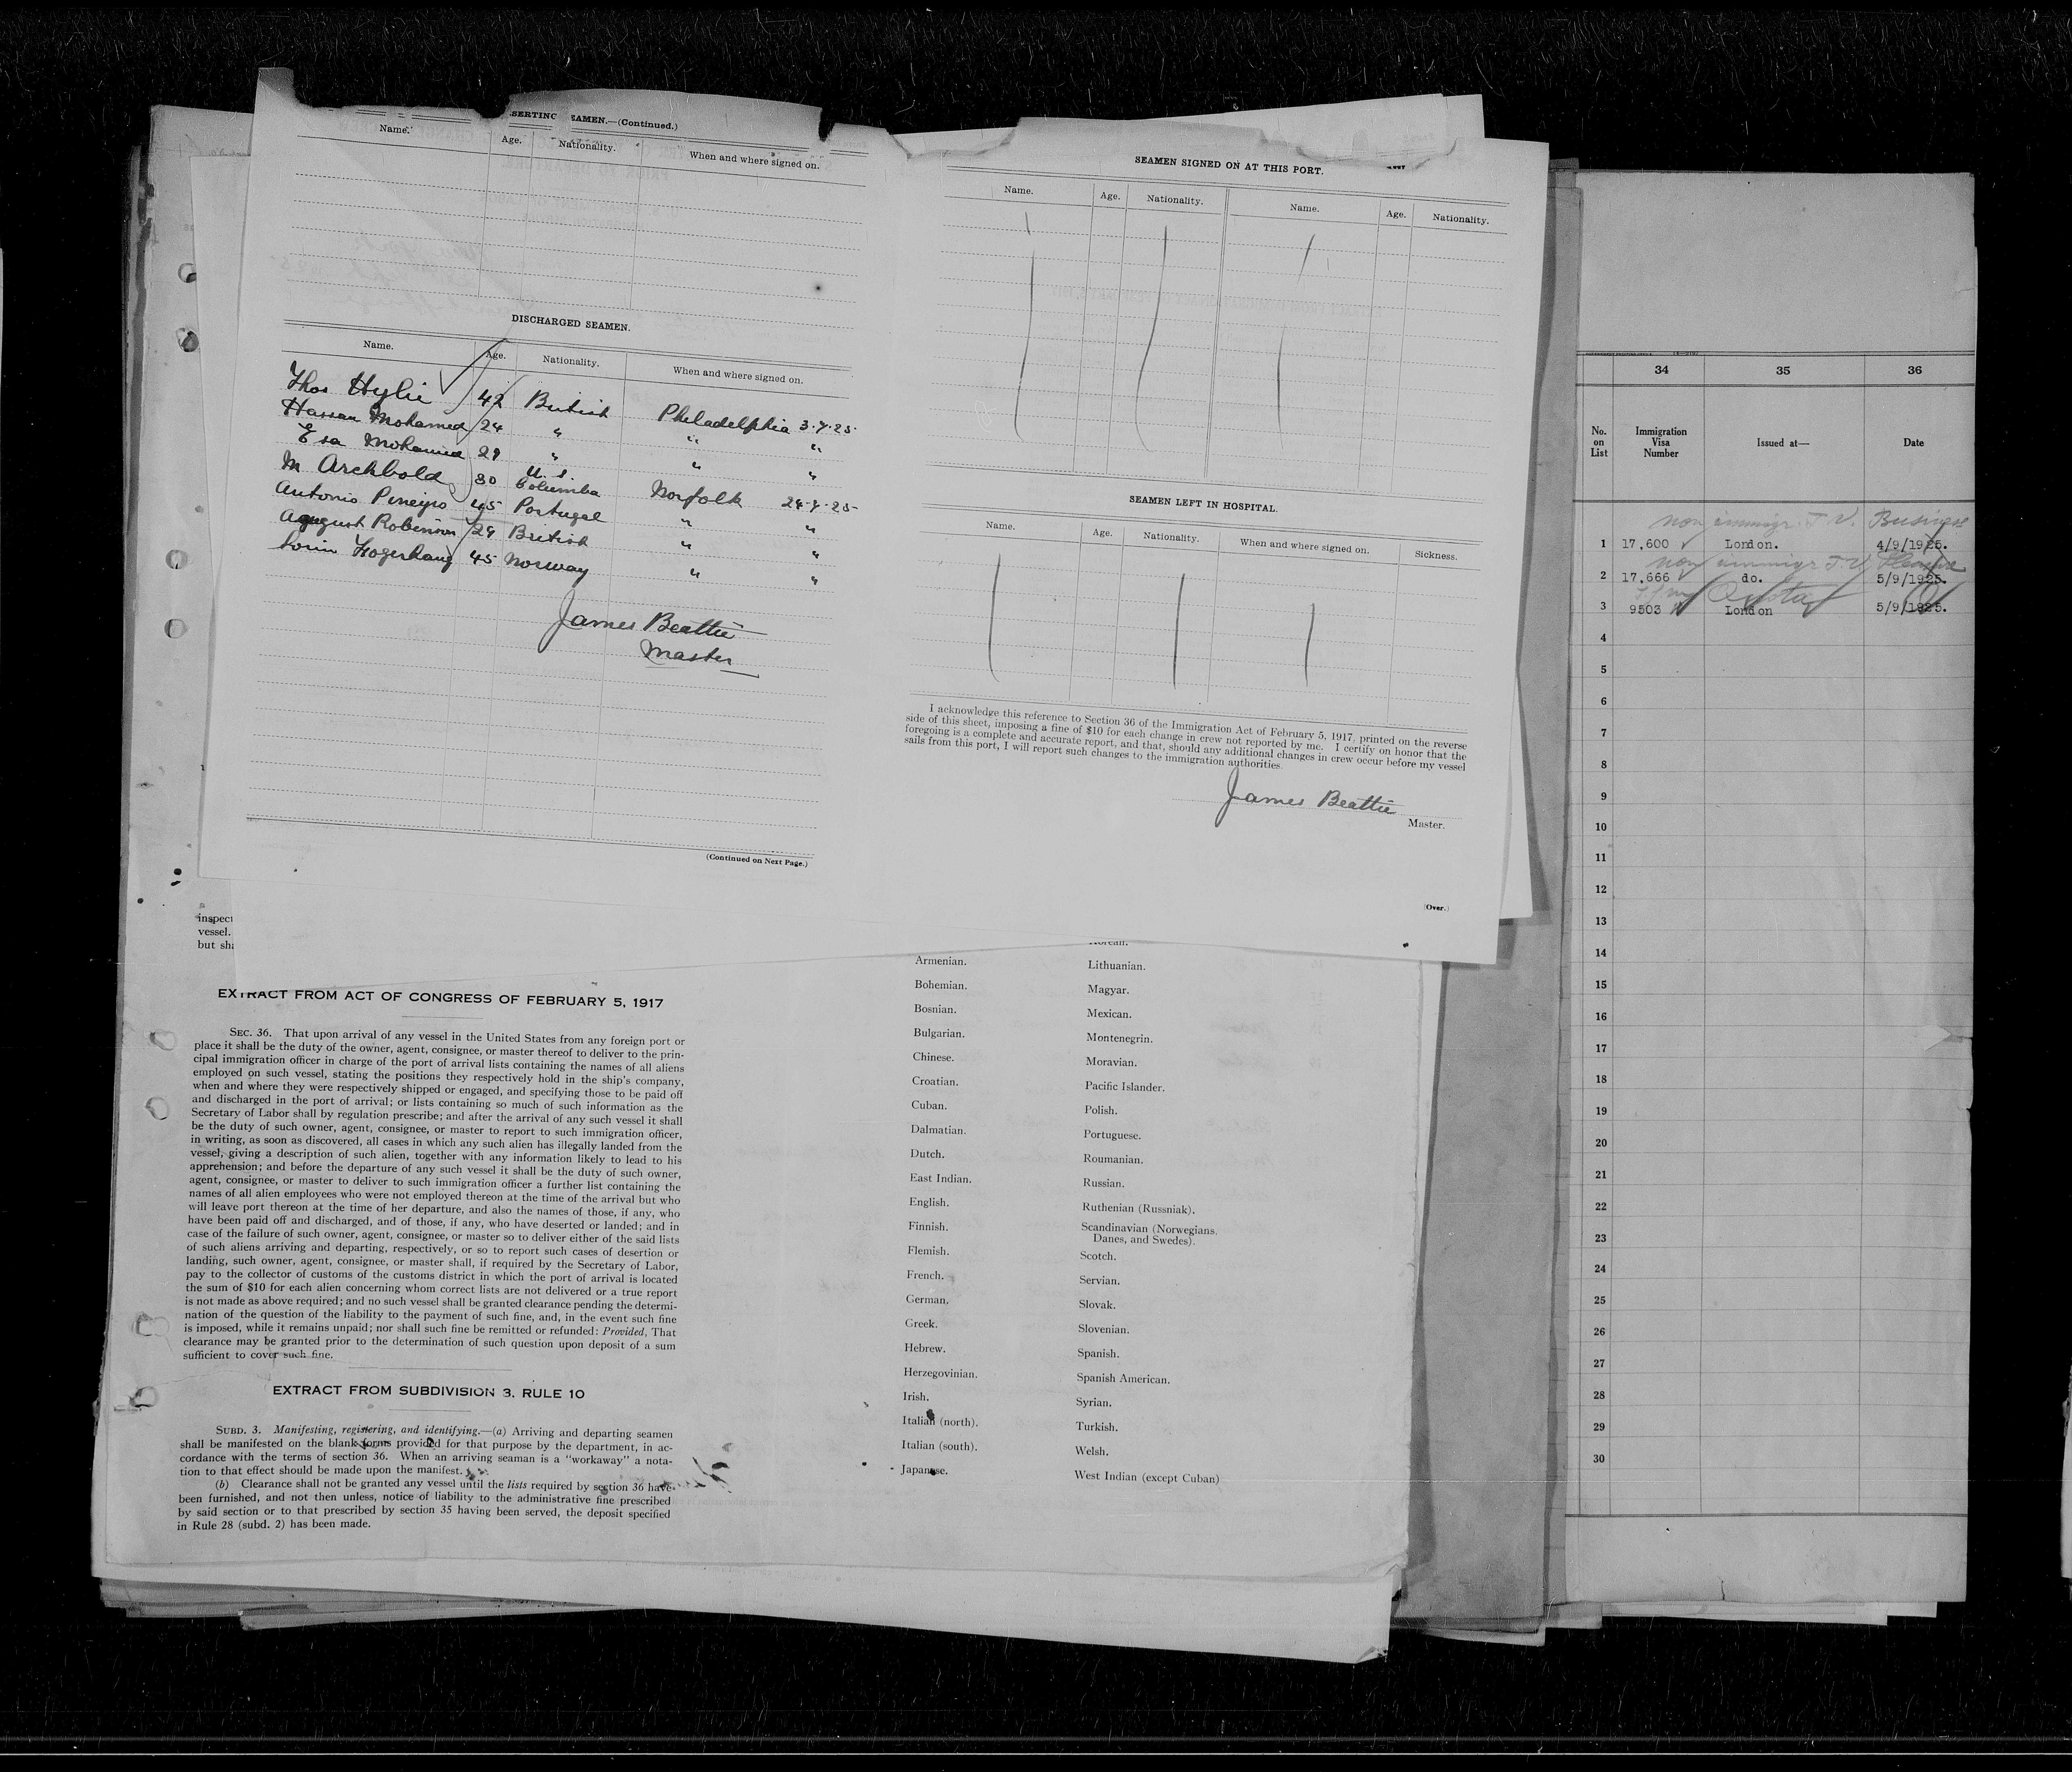 SEAMEN.—(Continued.)
Name. Age. Nationality. When and where signed on.
DISCHARGED SEAMEN.
Name. Age. Nationality. When and where signed on.
Thos Hylie 42 British Philadelphia 3.7.25.
Hassan Mohamed 24 " " "
Esa Mohamed 29 " " "
M Archbold 30 U.S. Columbia Norfolk 24.7.25-
Antonio 45 Portugal " "
August Robinson 29 British " "
45 Norway " "
James Beattie
Master
(Continued on Next Page.)
SEAMEN SIGNED ON AT THIS PORT.
Name. Age. Nationality. Name. Age. Nationality.
SEAMEN LEFT IN HOSPITAL.
Name. Age. Nationality. When and where signed on. Sickness.
I acknowledge this reference to Section 36 of the Immigration Act of February 5, 1917, printed on the reverse
side of this sheet, imposing a fine of $10 for each change in crew not reported by me. I certify on honor that the
foregoing is a complete and accurate report, and that, should any additional changes in crew occur before my vessel
sails from this port, I will report such changes to the immigration authorities.
James Beattie
Master.
(Over.)
inspect
vessel.
but sha
EXTRACT FROM ACT OF CONGRESS OF FEBRUARY 5, 1917
SEC. 36. That upon arrival of any vessel in the United States from any foreign port or
place it shall be the duty of the owner, agent, consignee, or master thereof to deliver to the prin-
cipal immigration officer in charge of the port of arrival lists containing the names of all aliens
employed on such vessel, stating the positions they respectively hold in the ship's company,
when and where they were respectively shipped or engaged, and specifying those to be paid off
and discharged in the port of arrival; or lists containing so much of such information as the
Secretary of Labor shall by regulation prescribe; and after the arrival of any such vessel it shall
be the duty of such owner, agent, consignee, or master to report to such immigration officer,
in writing, as soon as discovered, all cases in which any such alien has illegally landed from the
vessel, giving a description of such alien, together with any information likely to lead to his
apprehension; and before the departure of any such vessel it shall be the duty of such owner,
agent, consignee, or master to deliver to such immigration officer a further list containing the
names of all alien employees who were not employed thereon at the time of the arrival but who
will leave port thereon at the time of her departure, and also the names of those, if any, who
have been paid off and discharged, and of those, if any, who have deserted or landed; and in
case of the failure of such owner, agent, consignee, or master so to deliver either of the said lists
of such aliens arriving and departing, respectively, or so to report such cases of desertion or
landing, such owner, agent, consignee, or master shall, if required by the Secretary of Labor,
pay to the collector of customs of the customs district in which the port of arrival is located
the sum of $10 for each alien concerning whom correct lists are not delivered or a true report
is not made as above required; and no such vessel shall be granted clearance pending the determi-
nation of the question of the liability to the payment of such fine, and, in the event such fine
is imposed, while it remains unpaid; nor shall such fine be remitted or refunded: Provided, That
clearance may be granted prior to the determination of such question upon deposit of a sum
sufficient to cover such fine.
EXTRACT FROM SUBDIVISION 3, RULE 10
SUBD. 3. Manifesting, registering, and identifying.—(a) Arriving and departing seamen
shall be manifested on the blank forms provided for that purpose by the department, in ac-
cordance with the terms of section 36. When an arriving seaman is a "workaway" a nota-
tion to that effect should be made upon the manifest.
(b) Clearance shall not be granted any vessel until the lists required by section 36 have
been furnished, and not then unless, notice of liability to the administrative fine prescribed
by said section or to that prescribed by section 35 having been served, the deposit specified
in Rule 28 (subd. 2) has been made.
Korean.
Armenian. Lithuanian.
Bohemian. Magyar.
Bosnian. Mexican.
Bulgarian. Montenegrin.
Chinese. Moravian.
Croatian. Pacific Islander.
Cuban. Polish.
Dalmatian. Portuguese.
Dutch. Roumanian.
East Indian. Russian.
English. Ruthenian (Russniak).
Finnish. Scandinavian (Norwegians.
Danes, and Swedes).
Flemish. Scotch.
French. Servian.
German. Slovak.
Greek. Slovenian.
Hebrew. Spanish.
Herzegovinian. Spanish American.
Irish. Syrian.
Italian (north). Turkish.
Italian (south). Welsh.
Japanese. West Indian (except Cuban)
34 35 36
No. on List Immigration Visa Number Issued at— Date
non immigr T.V. Business
1 17,600 London. 4/9/1925.
non immigr T.V.
2 17,666 do. 5/9/1925.
Quota
3 9503 London 5/9/1925.
4
5
6
7
8
9
10
11
12
13
14
15
16
17
18
19
20
21
22
23
24
25
26
27
28
29
30